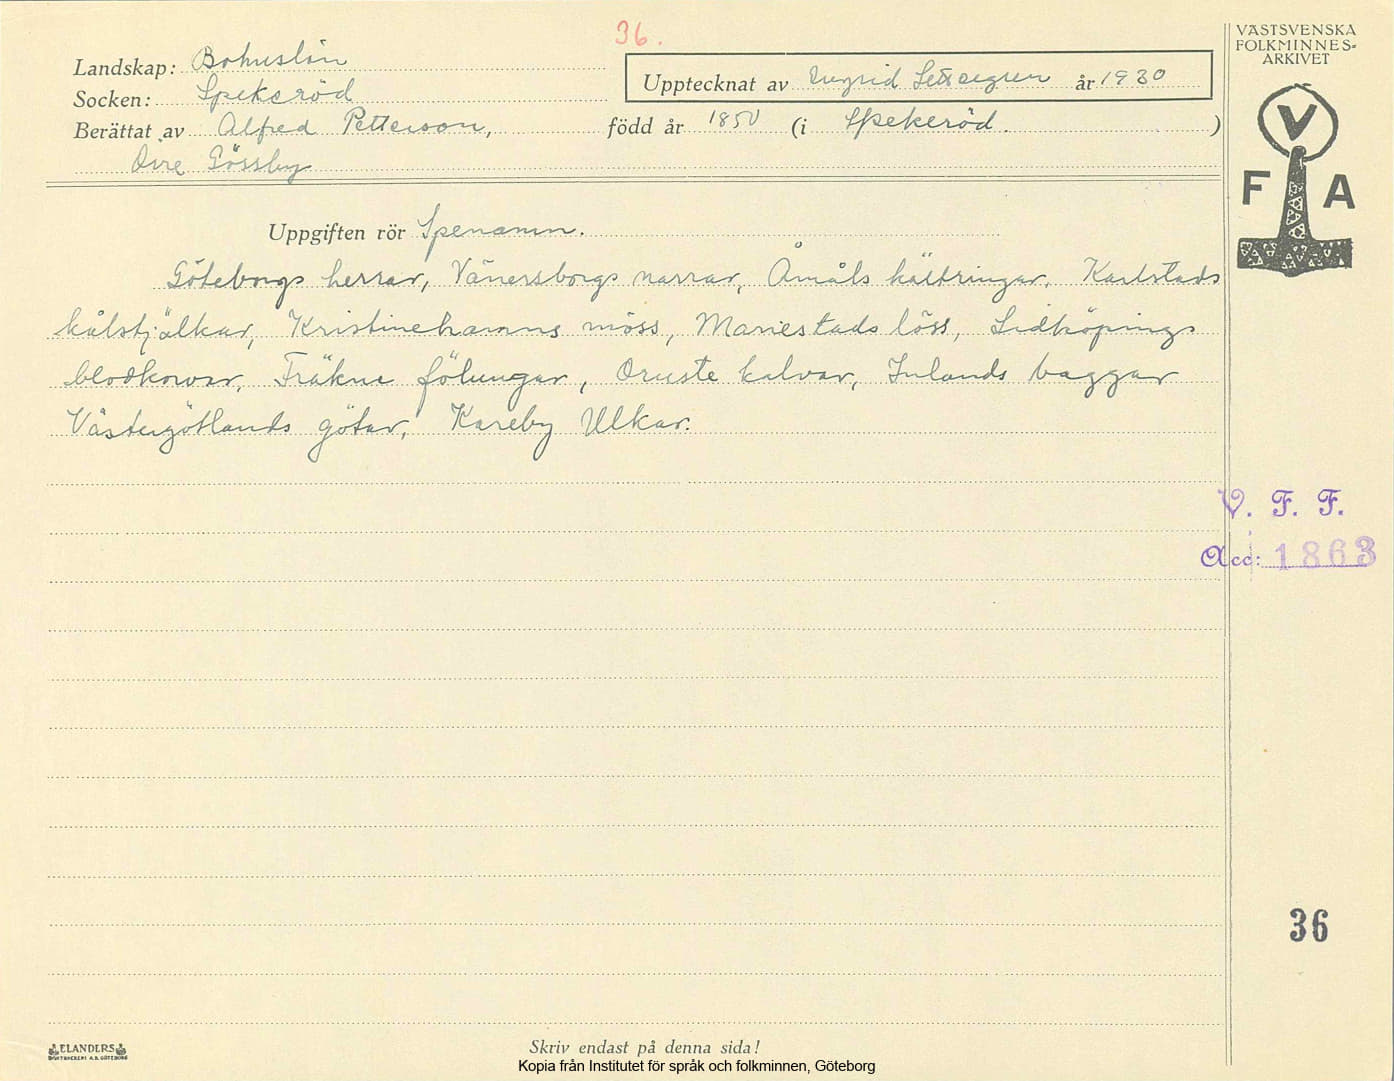 36.
Landskap: Bohuslän
Socken: Spekeröd
Upptecknat av Ingrid år 1930
Berättat av Alfred Petterson, född år 1850 (i Spekeröd.)
Övre Gössby
Uppgiften rör Spenamn.
Göteborgs herrar, Vänersborgs narrar, Åmåls kältringar, Karlstads
kålstjälkar, Kristinehamns möss, Mariestads löss, Lidköpings
blodkorvar, Fräkne fölungar, Oruste kalvar, Inlands baggar
Västergötlands götar, Kareby Ulkar.
VÄSTSVENSKA
FOLKMINNES-
ARKIVET
V
F A
V. F. F.
Acc: 1863
36
ELANDERS
BOKTRYCKERI A.B. GÖTEBORG
Skriv endast på denna sida!
Kopia från Institutet för språk och folkminnen, Göteborg